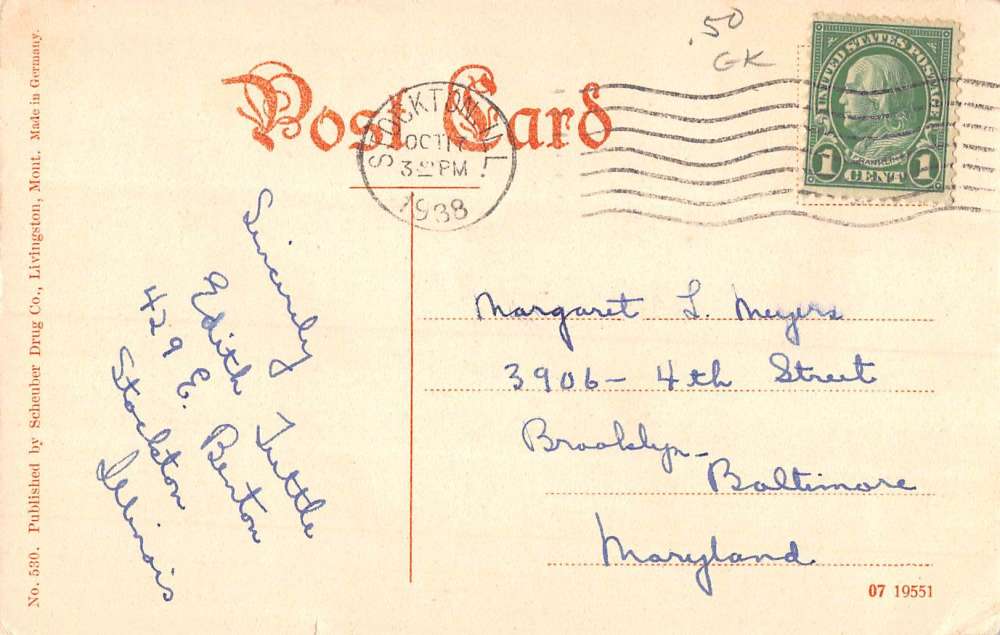 .50
GK
Post Card
STOCKTON, ILL.
OCT 17
3 PM
1938
UNITED STATES POSTAGE
FRANKLIN
1 CENT 1
Sincerely
Edith Tuttle
429 E. Benton
Stockton
Illinois
Margaret L. Meyers
3906- 4th Street
Brooklyn-
Baltimore
Maryland
07 19551
No. 530. Published by Scheuber Drug Co., Livingston, Mont. Made in Germany.